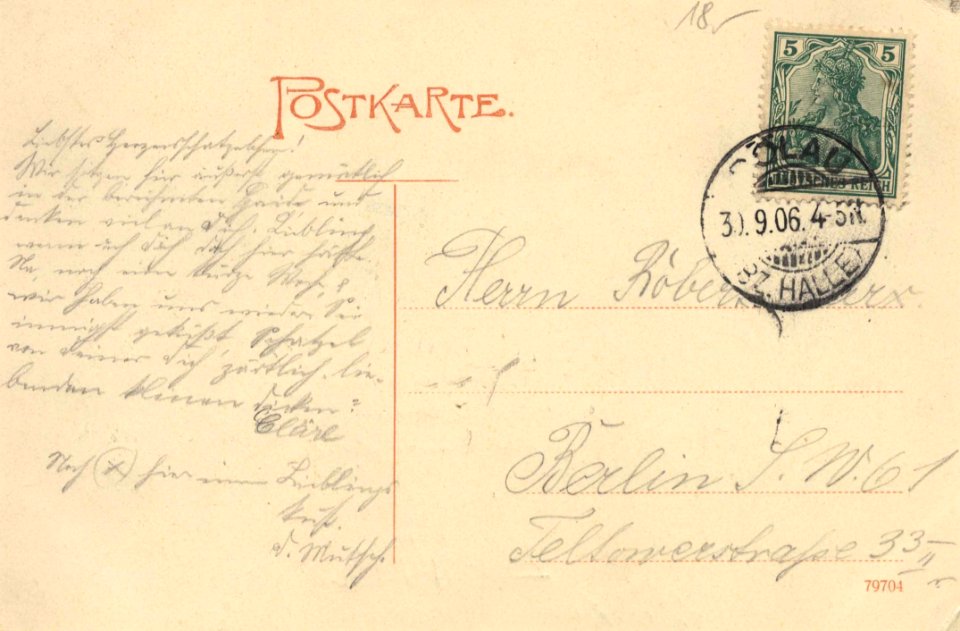 18
POSTKARTE.
5 5
DEUTSCHES REICH
DÖLAU
30.9.06. 4-5N.
BZ. HALLE
Liebstes Herzensschatzelchen!
Wir sitzen hier äußerst gemütlich
in der berühmten Haide und
denken viel an Dich. Liebling
wenn ich Dich doch hier hätte.
Na, noch eine kurze Weile
wir haben uns wieder. Sei
innigst geküßt Schatzel
von Deiner Dich zärtlich lie-
benden kleinen dicken
Cläre
Noch hier einen Lieblings
kuß.
d. Mutsch.
Herrn Robert
Berlin S. W. 61
Teltowerstraße 33 II
79704